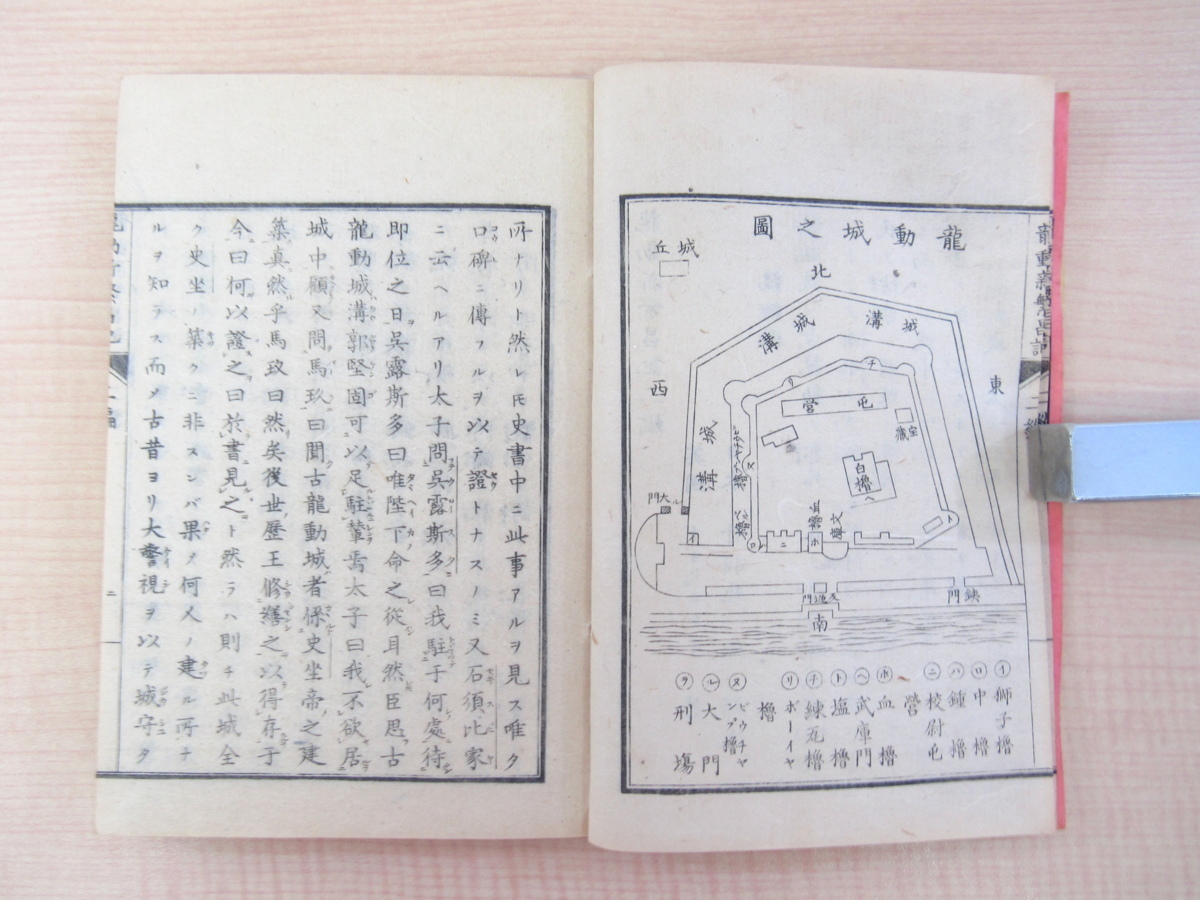 龍動新繁昌記
龍動城之圖
北
城丘
城溝
城溝
西
東
城溝
屯營
宝藏
白櫓
ヘ
チ
リ
ヌ
ト
大門
ル
イ
ロ
ニ
ホ
血櫓
文庫
鐵門
南
㋑獅子櫓
㋺中櫓
㋩鐘櫓
㋥校尉屯
營
㋭血櫓
㋬武庫門
㋣塩櫓
㋠練瓦櫓
㋷ボーイヤ
櫓
㋦ビウチヤ
ンプ櫓
㋸大門
㋾刑塲
所ナリト然レ𪜈史書中ニ此事アルヲ見ス唯タ
口碑ニ傳フルヲ以テ證トナスノミ又石須比家
ニ云ヘルアリ太子問吳露斯多曰我駐于何處待
即位之日吳露斯多曰唯陛下命之從耳然臣思古
龍動城溝郭堅固可以足駐輦焉太子曰我不欲居
城中顧又問馬玖曰聞古龍動城者係史坐帝之建
築真然乎馬玖曰然矣後世歷王修繕之以得存于
今曰何以證之曰於書見之ト然ラハ則チ此城全
ク史坐ノ築クニ非スンバ果メ何人ノ建ル所ナ
ルヲ知ラス而メ古昔ヨリ大警視ヲ以テ城守タ